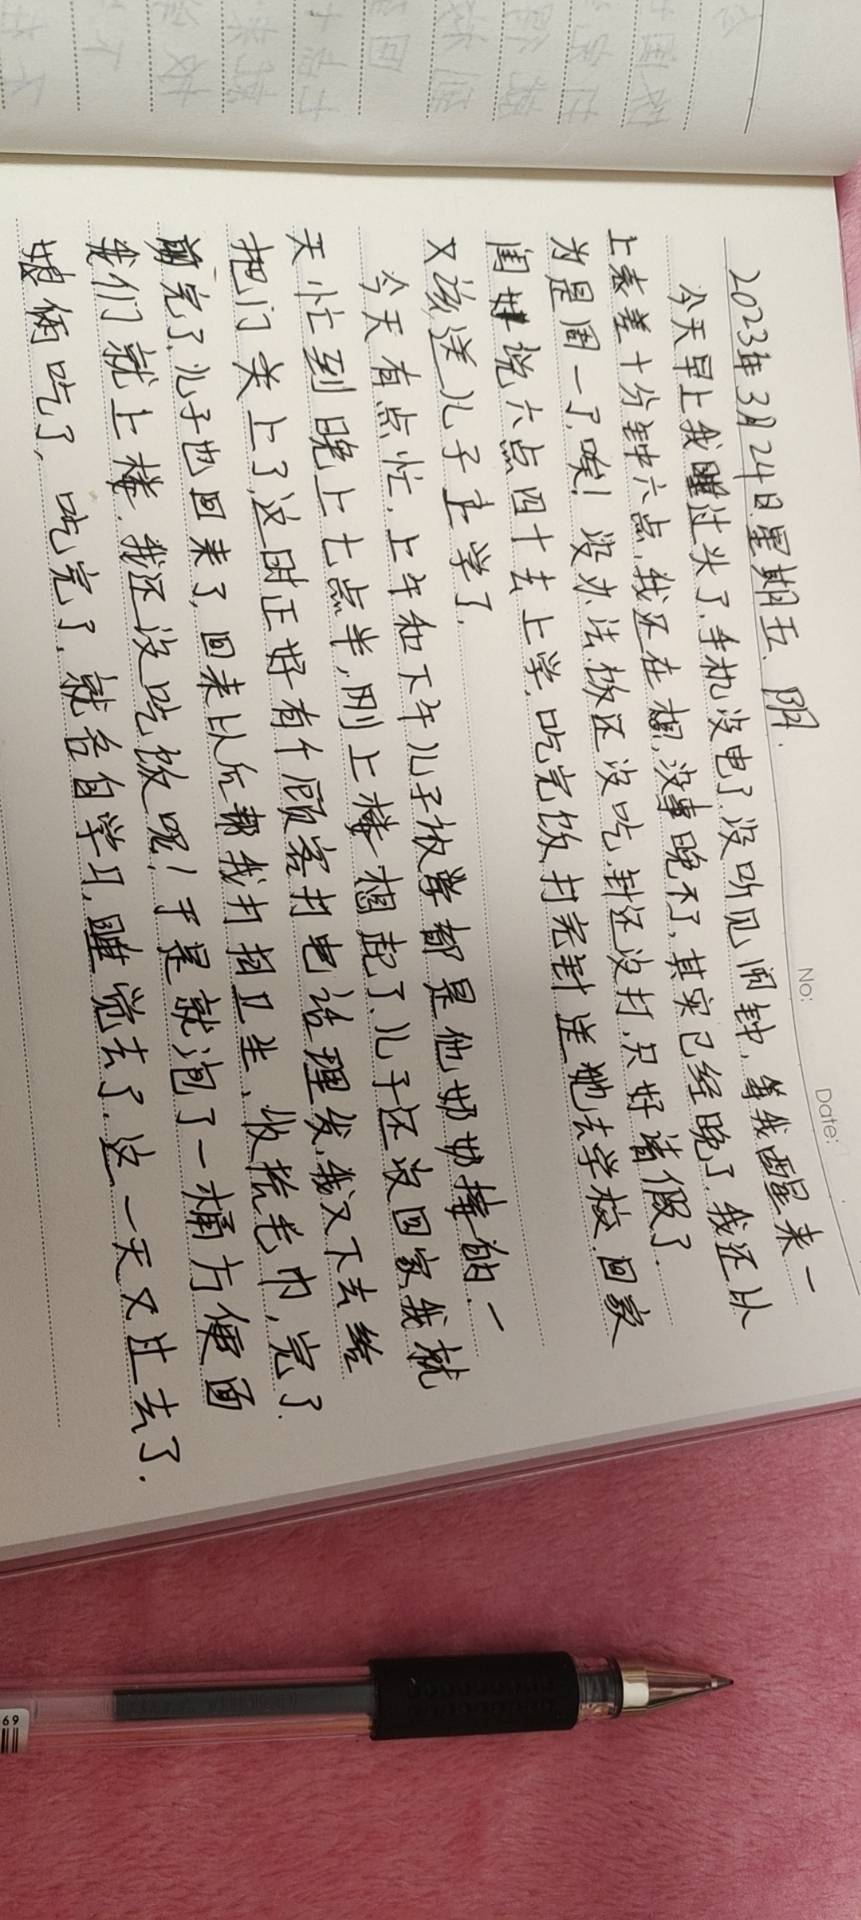 No:
Date:
2023年3月24日星期五、阴.
今天早上我睡过头了,手机没电了,没听见闹钟,等我醒来一
上表差十分钟六点,我还在想,没事晚不了,其实已经晚了.我还以
为是周一了,唉!没办法,饭还没吃,针还没打,只好请假了.
闺女说六点四十去上学,吃完饭,打完针送她去学校,回家
又该送儿子上学了.
今天有点忙,上午和下午儿子放学都是他奶奶接的,一
天忙到晚上七点半,刚上楼想起了,儿子还没回家,我就
把门关上了,这时正好有个顾客打电话理发,我又下去给
剪完了,儿子也回来了,回来以后帮我打扫卫生、收拾毛巾,完了.
我们就上楼.我还没吃饭呢!于是就泡了一桶方便面
娘俩吃了,吃完了,就各自学习,睡觉去了.这一天又过去了.
69